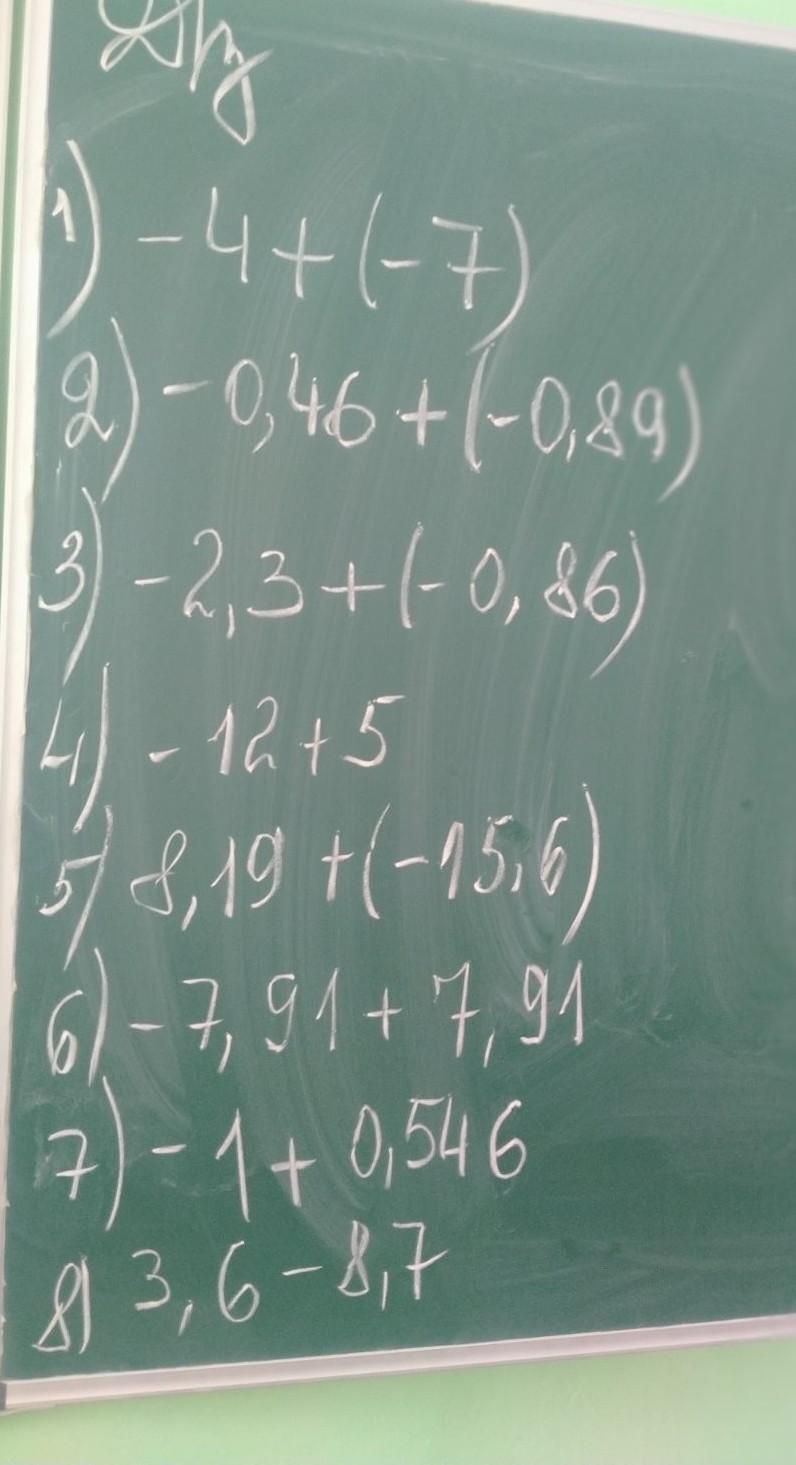 Д/з
1) - 4 + (- 7)
2) - 0,46 + (- 0,89)
3) - 2,3 + (- 0,86)
4) - 12 + 5
5) 8,19 + (- 15,6)
6) - 7,91 + 7,91
7) - 1 + 0,546
8) 3,6 - 8,7